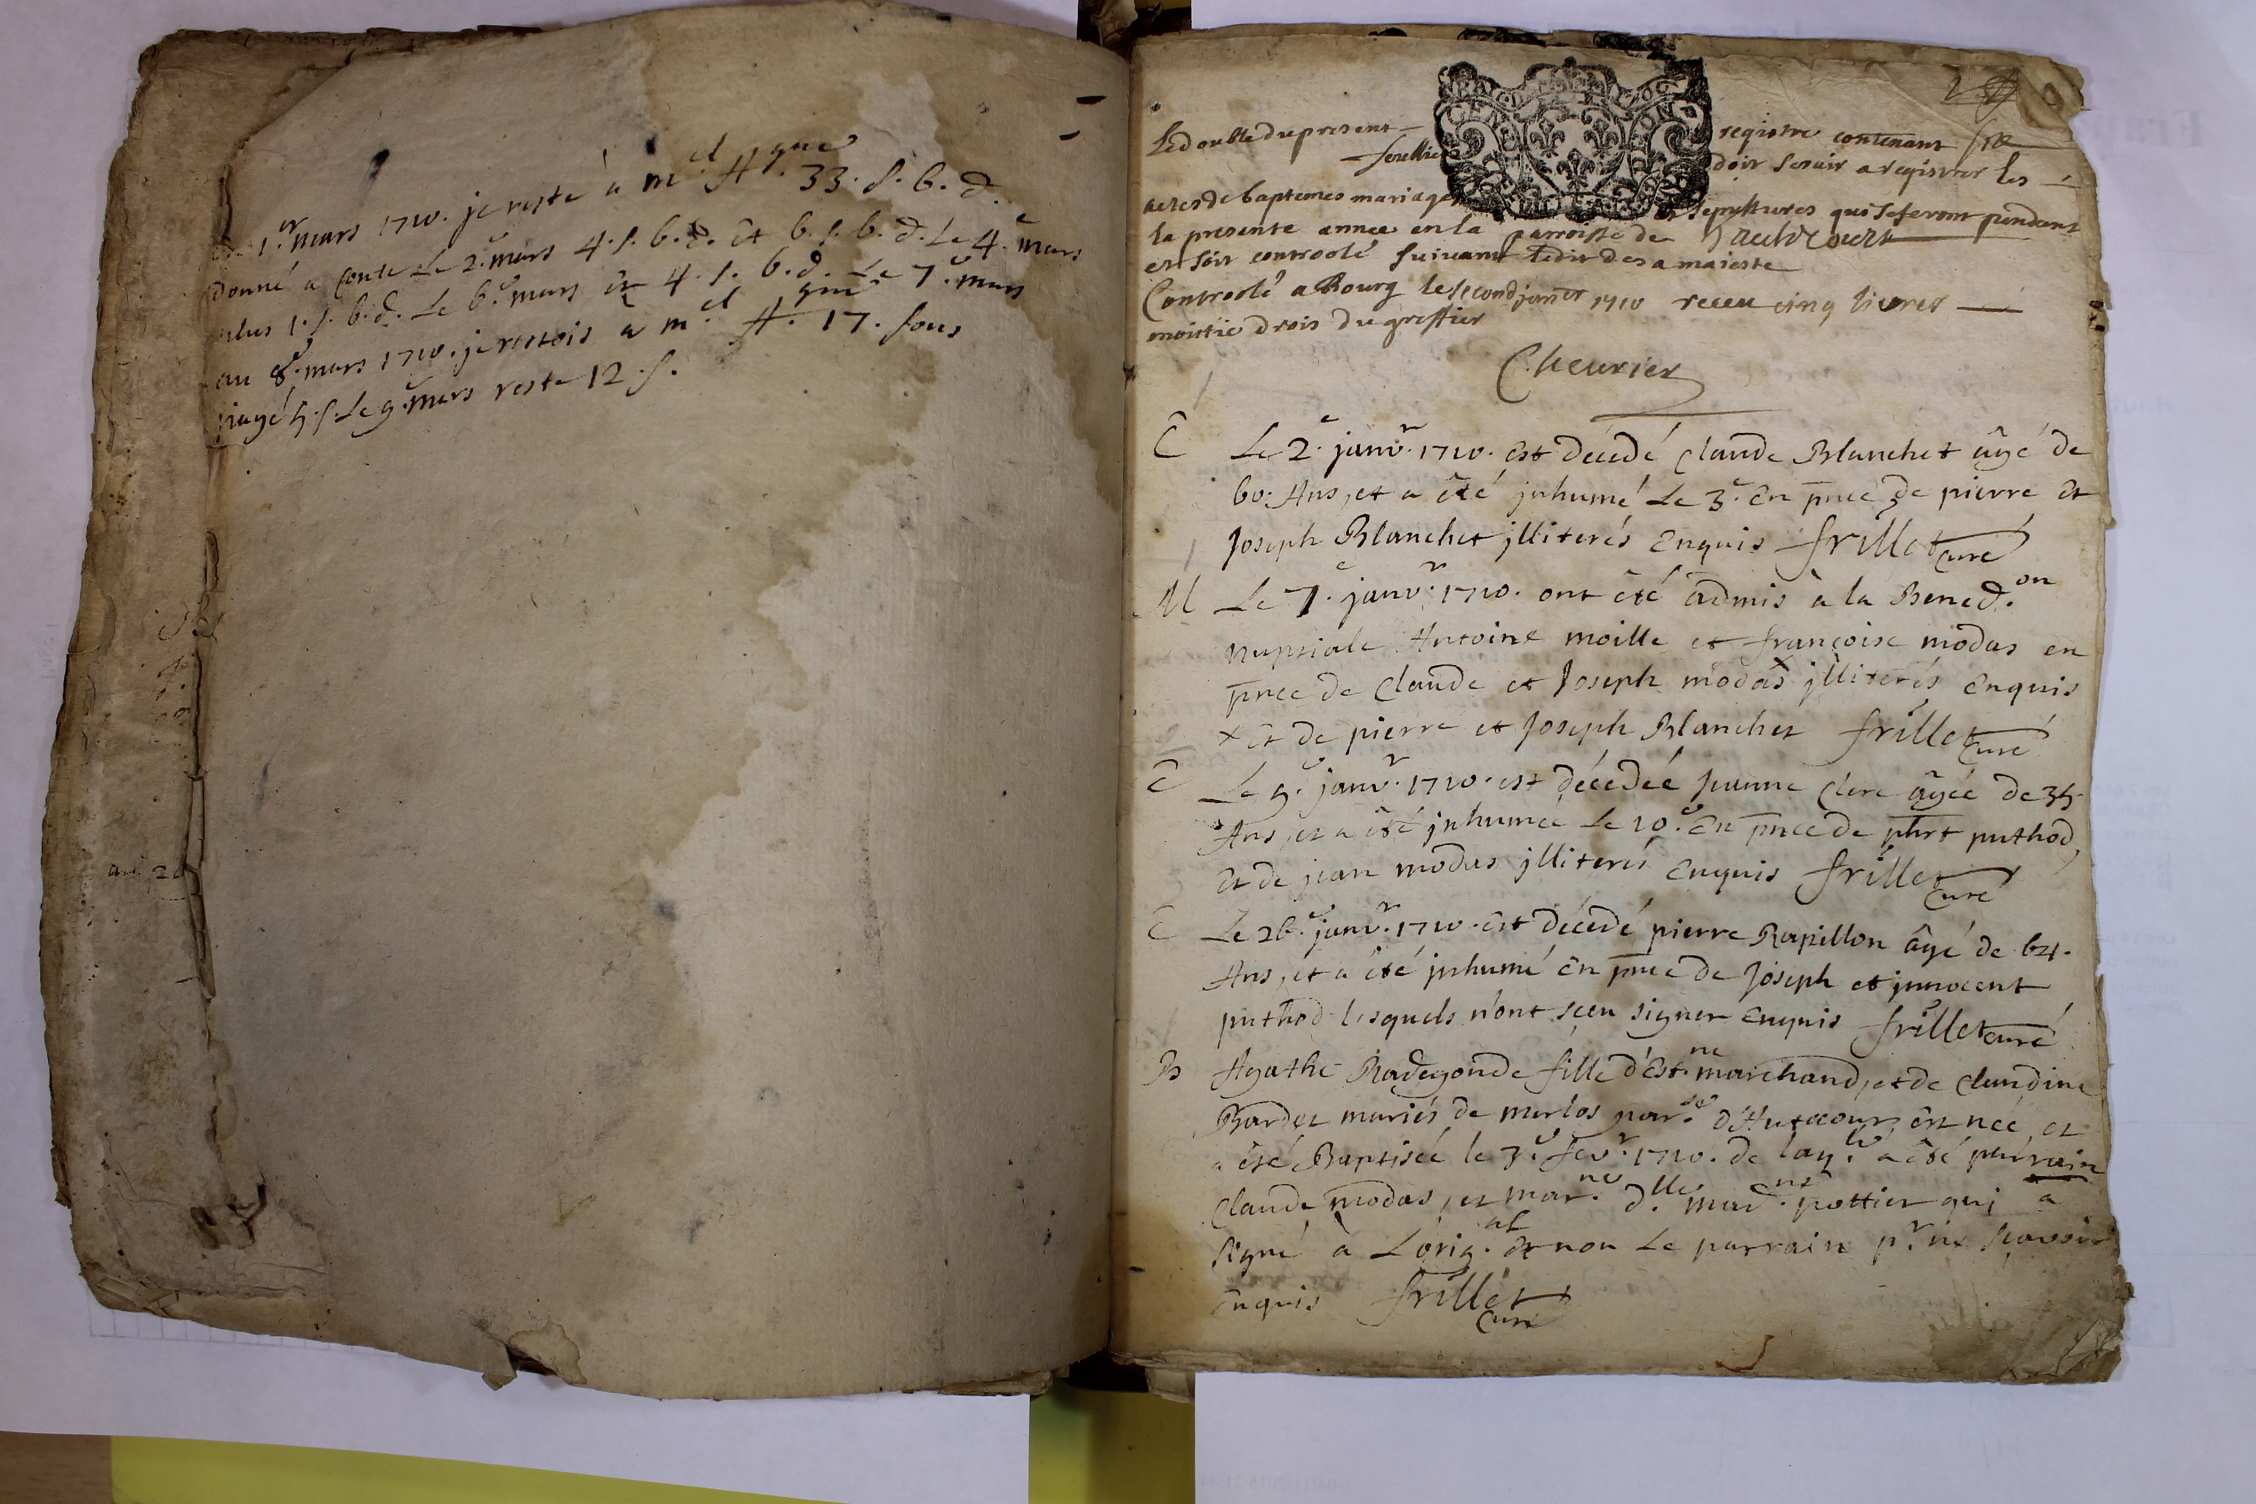 1.er mars 1710. je reste à m.el A.que 33. s. 6. d.
donné a conte Le 2.e mars 4. s. 6. d. et 6. s. 6. d. Le 4.e mars
plus 1. s. 6. d. Le 6.e mars et 4. s. 6. d. Le 7.e mars
au 8.e mars 1710. je restois a m.el A. 17. sous
payé 5. s. Le 9.e mars reste 12. s.
Le double du present registre contenant six
feuillets doit servir a registrer les
actes de baptemes mariages et sepultures qui se feront pendant
la presente annee en la parroisse de hautecourt
et soit controolé suivant ledit de sa majeste
Controolé a Bourg le second janer 1710 receu cinq livres
moittie drois du greffier
Cheurier
Le 2.e janv.r 1710. est décedé Claude Blanchet âgé de
60. Ans, et a êté jnhumé Le 3.e En pnce de pierre et
Joseph Blanchet jlliterés Enquis frillet curé
M Le 7.e janv.r 1710. ont êté admis à la Bened.on
nuptiale Antoine moille et françoise modas en
pnce de Claude et Joseph modas x jlliterés Enquis
x et de pierre et Joseph Blanchet frillet curé
Le 9.e janv.r 1710. est décedée Jeanne Clerc âgée de 35.
Ans, et a êté jnhumée Le 10.e En pnce de phrt puthod,
et de jean modas jlliterés Enquis frillet curé
Le 26.e janv.r 1710. est décedé pierre Rapillon âgé de 64.
Ans, et a êté jnhumé En pnce de Joseph et jnnocent
puthod lesquels n'ont sçeu signer Enquis frillet curé
B Agathe Radegonde fille d'Est.ne marchand, et de Claudine
Bardet mariés de merlos par.se d'Hutecour, est née, et
a êté Baptisée le 3.e fev.r 1710. de laq.le a êté parrain
Claude modas, et mar.ne d.lle mad.ne pottier qui a
signé à L'orig.al et non Le parrain p.r ne sçavoir
Enquis frillet curé